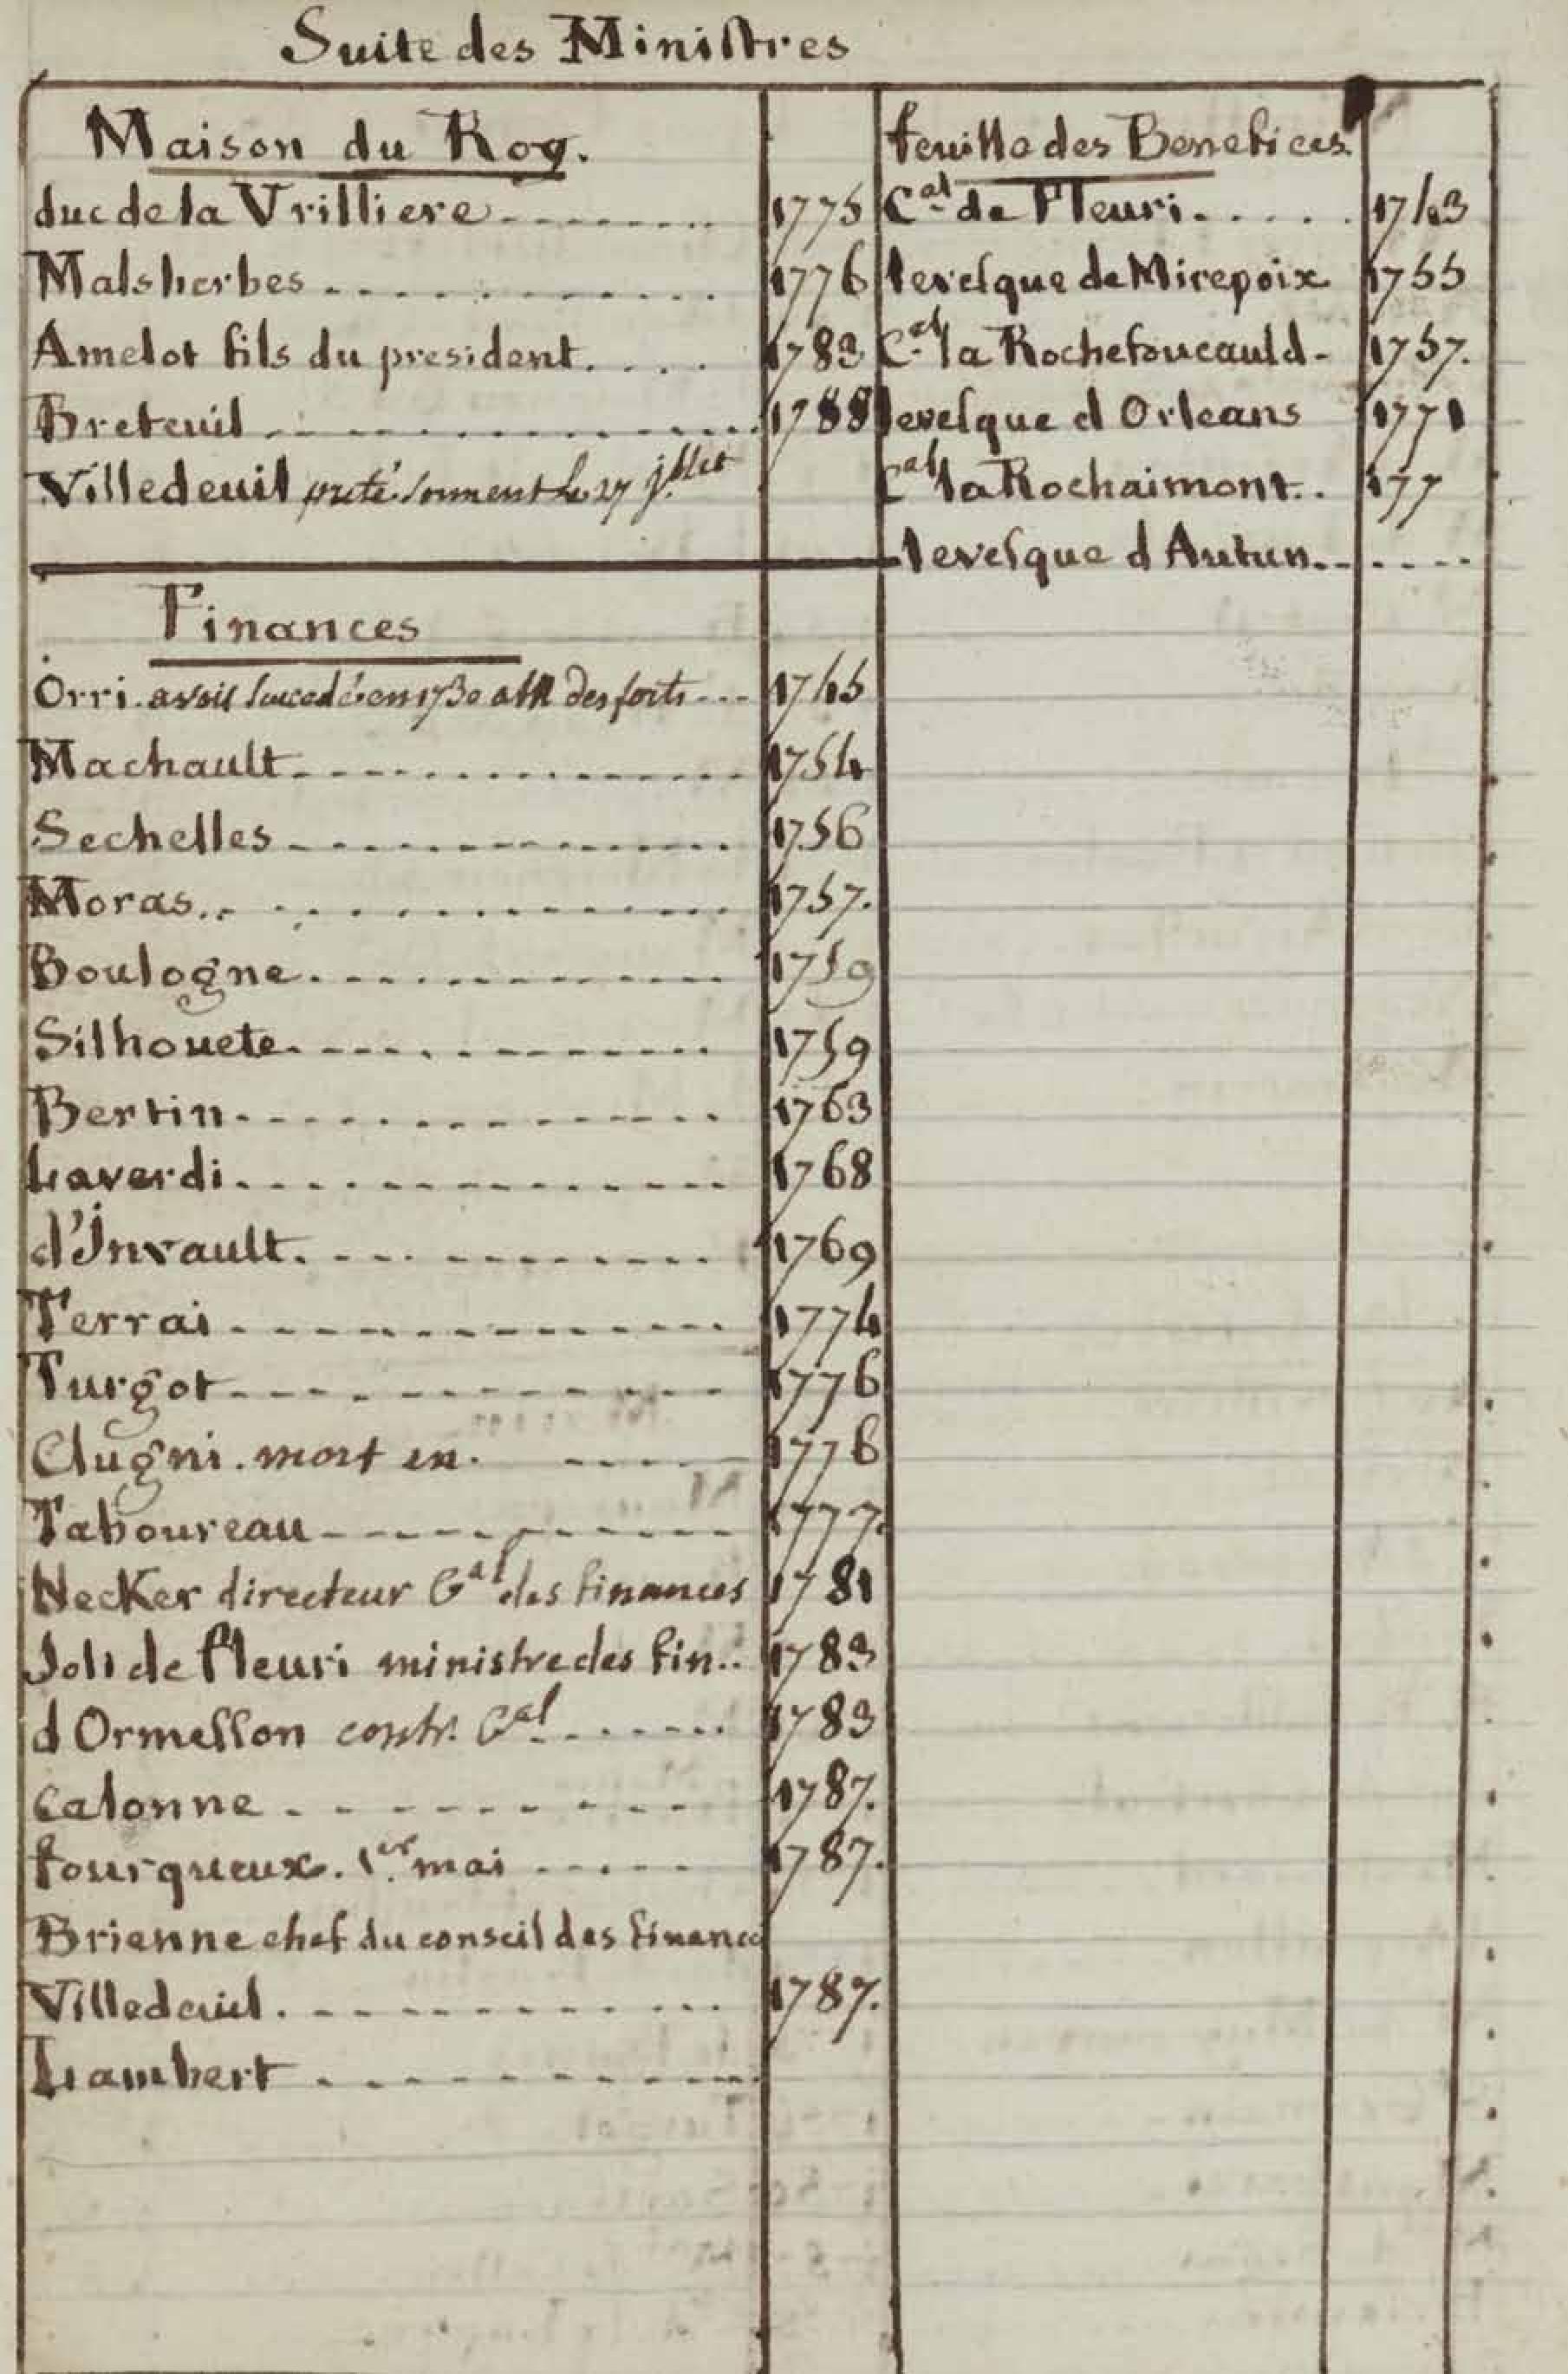 Suite des Ministres
Maison du Roy.
duc de la Vrilliere 1775
Malsherbes 1776
Amelot fils du president 1783
Breteuil 1788
Villedeuil prete serment le 27 jllet
Finances
Orri. avoit succedé en 1730 a Mr des forts 1745
Machault 1754
Sechelles 1756
Moras 1757.
Boulogne 1759
Silhouete 1759
Bertin 1763
Laverdi 1768
d'Invault 1769
Terrai 1774
Turgot 1776
Clugni. mort en. 1776
Taboureau 1777.
Necker directeur Gal des finances 1781
Joli de fleuri ministre des fin.. 1783
d Ormesson contr. Gal 1783
Calonne 1787.
fourqueux. 1er mai 1787.
Brienne chef du conseil des finances
Villedeuil 1787.
Lambert
feuille des Benefices
Cal de Fleuri 1743
levesque de Mirepoix 1755
Cal la Rochefoucauld 1757.
levesque d Orleans 1771
Cal la Rochaimont 177
levesque d Autun